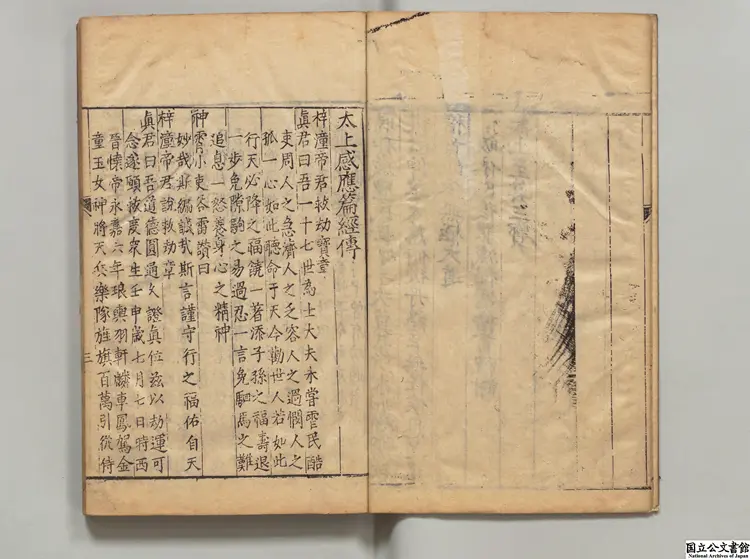 太上感應篇經傳
梓潼帝君救劫寶章
眞君曰吾一十七世爲士大夫未嘗虐民酷
吏周人之急濟人之乏容人之過憫人之
孤一心如此聽命于天今勸世人若如此
行天必降之福饒一著添子孫之福壽退
一步免隙駒之易過忍一言免駟馬之難
追息一怒養身心之精神
神霄小吏 雷讚曰
妙哉斯編誠哉斯言謹守行之福佑自天
梓潼帝君說救劫章
眞君曰吾道德圓通久證眞位兹以劫運可
念遂願救度衆生壬申歲七月七日時西
晉懷帝永嘉六年琅輿羽軒驎車鳳駕金
童玉女神將天兵樂隊旌旗百萬引從侍
三
国立公文書館
National Archives of Japan